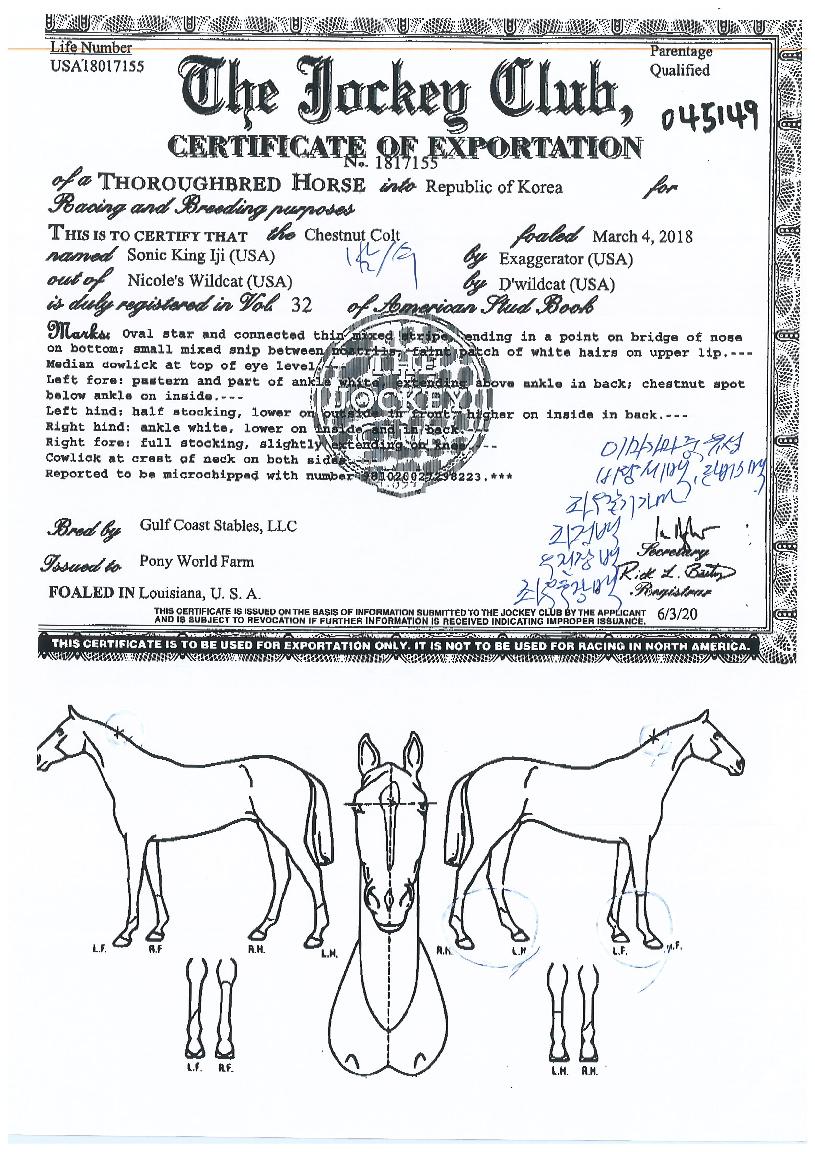 Life Number
USA18017155
Parentage
Qualified
The Jockey Club,
045149
CERTIFICATE OF EXPORTATION
No. 1817155
of a THOROUGHBRED HORSE into Republic of Korea for
Racing and Breeding purposes
THIS IS TO CERTIFY THAT the Chestnut Colt foaled March 4, 2018
named Sonic King Iji (USA) by Exaggerator (USA)
out of Nicole's Wildcat (USA) by D'wildcat (USA)
is duly registered in Vol. 32 of American Stud Book
Marks: Oval star and connected thin mixed stripe, ending in a point on bridge of nose
on bottom; small mixed snip between nostrils, faint patch of white hairs on upper lip.---
Median cowlick at top of eye level.---
Left fore: pastern and part of ankle white, extending above ankle in back; chestnut spot
below ankle on inside.---
Left hind: half stocking, lower on outside in front, higher on inside in back.---
Right hind: ankle white, lower on inside and in back.---
Right fore: full stocking, slightly extending on knee.---
Cowlick at crest of neck on both sides.---
Reported to be microchipped with number
THE JOCKEY
Bred by Gulf Coast Stables, LLC
Secretary
Issued to Pony World Farm
Rick L. Bailey
Registrar
FOALED IN Louisiana, U. S. A.
THIS CERTIFICATE IS ISSUED ON THE BASIS OF INFORMATION SUBMITTED TO THE JOCKEY CLUB BY THE APPLICANT
AND IS SUBJECT TO REVOCATION IF FURTHER INFORMATION IS RECEIVED INDICATING IMPROPER ISSUANCE.
6/3/20
THIS CERTIFICATE IS TO BE USED FOR EXPORTATION ONLY. IT IS NOT TO BE USED FOR RACING IN NORTH AMERICA.
L.F. R.F R.H. L.H. R.H. L.H L.F.
L.F. R.F. L.H. R.H.